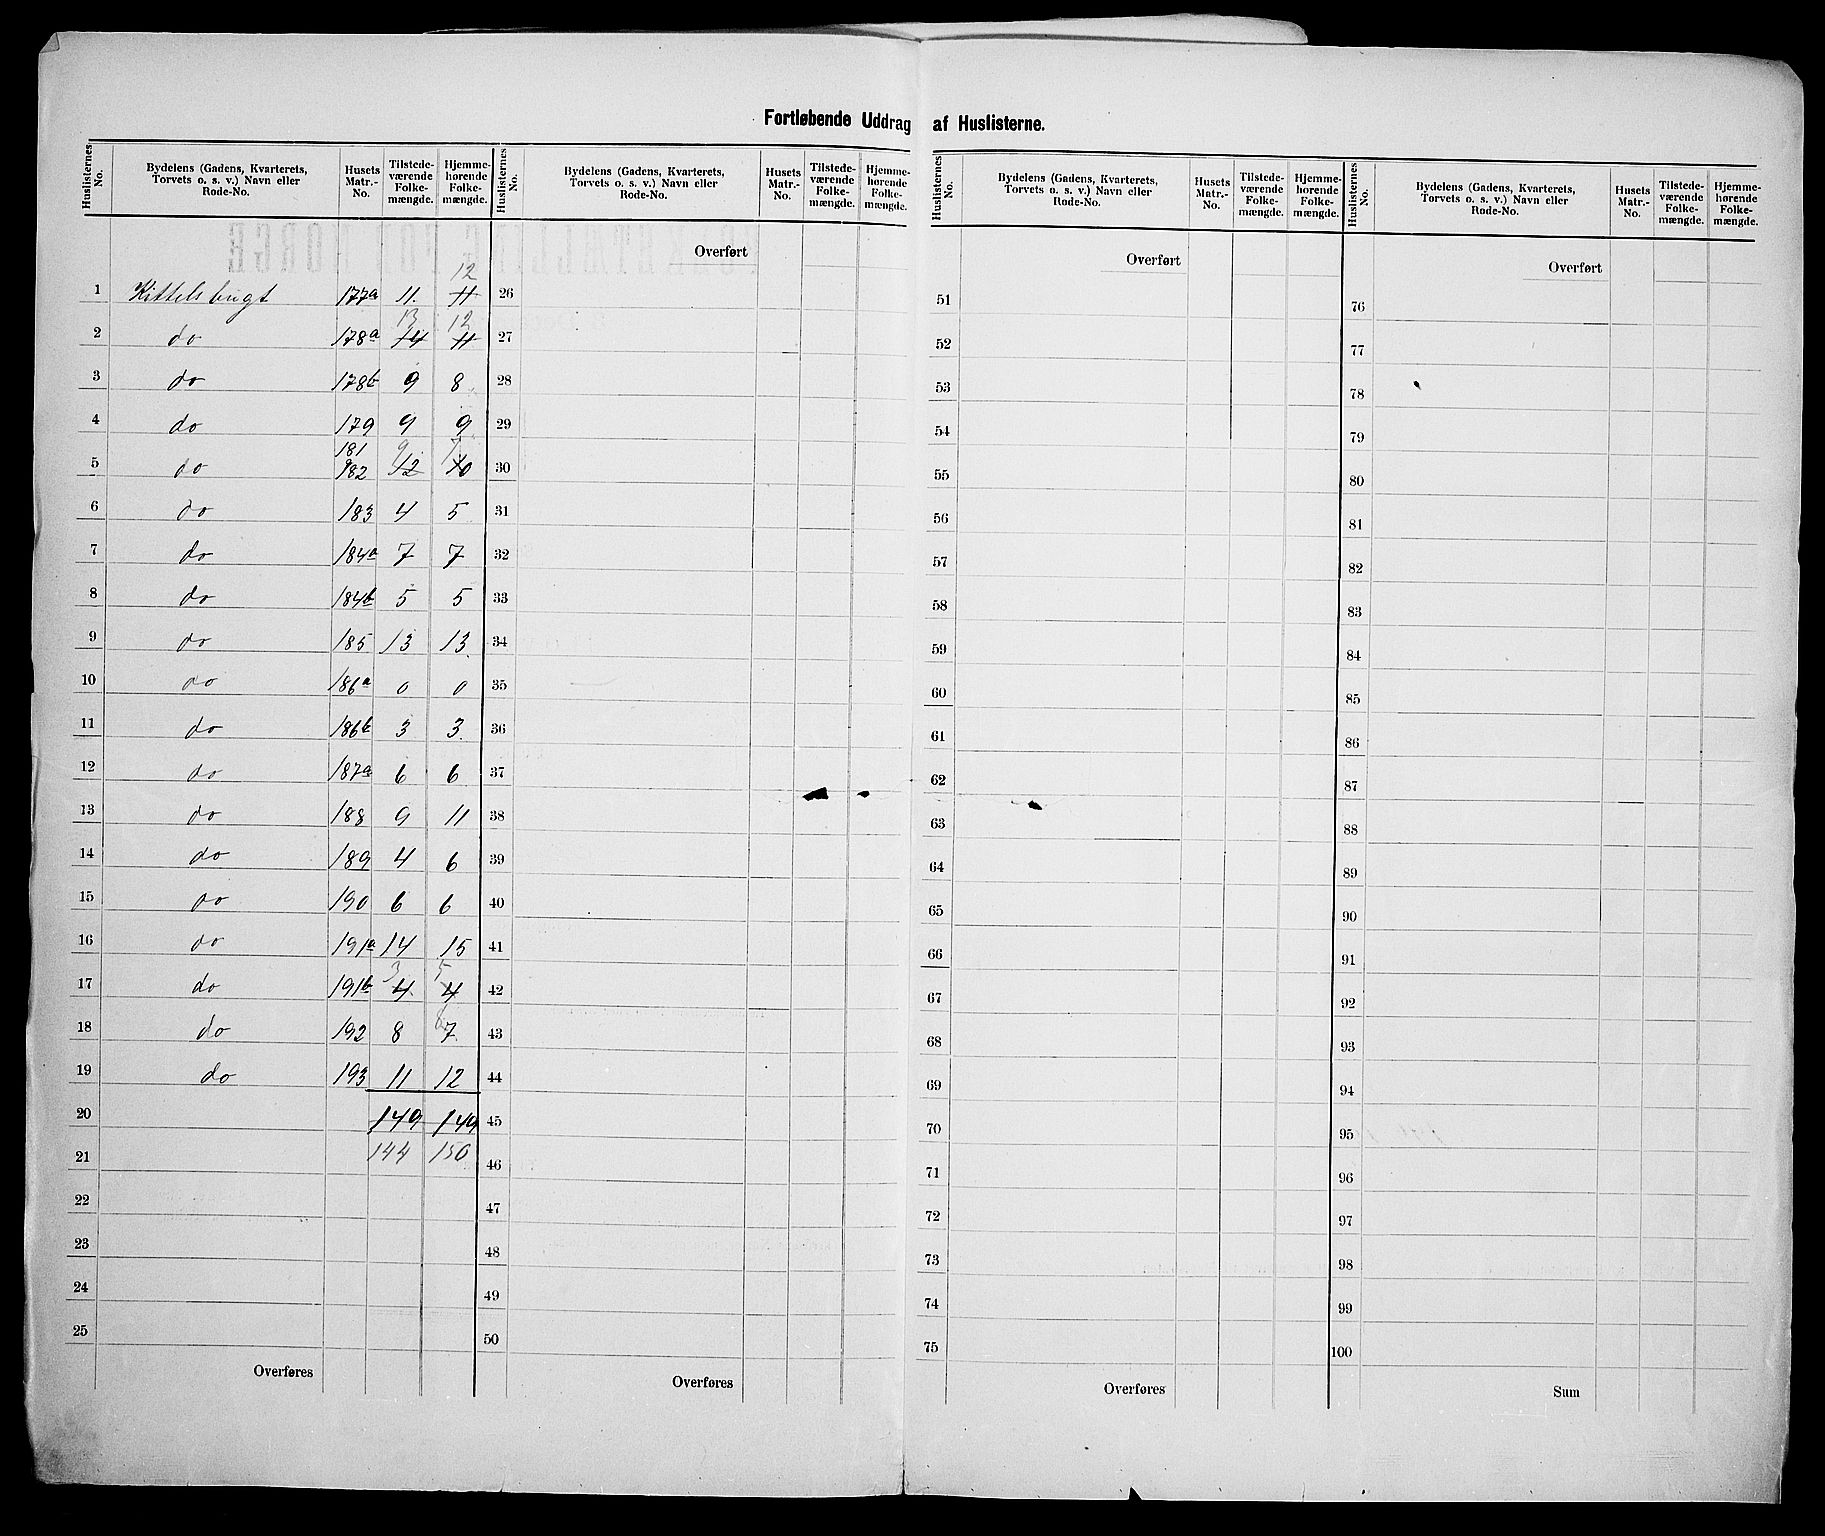 Fortløbende Uddrag af Huslisterne.
Huslisternes No. | Bydelens (Gadens, Kvarterets, Torvets o. s. v.) Navn eller Rode-No. | Husets Matr.-No. | Tilstedeværende Folkemængde. | Hjemmehørende Folkemængde.
12
1 Kittelsbugt 177a 11. 11
13 12
2 do 178a 14 11
3 do 178b 9 8
4 do 179 9 9
181 9 7
5 do 182 12 10
6 do 183 4 5
7 do 184a 7 7
8 do 184b 5 5
9 do 185 13 13
10 do 186a 0 0
11 do 186b 3 3
12 do 187a 6 6
13 do 188 9 11
14 do 189 4 6
15 do 190 6 6
16 do 191a 14 15
3 5
17 do 191b 4 4
6
18 do 192 8 7
19 do 193 11 12
20 149 149
21 144 150
22
23
24
25
Overføres
Huslisternes No. | Bydelens (Gadens, Kvarterets, Torvets o. s. v.) Navn eller Rode-No. | Husets Matr.-No. | Tilstedeværende Folkemængde. | Hjemmehørende Folkemængde.
Overført
26
27
28
29
30
31
32
33
34
35
36
37
38
39
40
41
42
43
44
45
46
47
48
49
50
Overføres
Huslisternes No. | Bydelens (Gadens, Kvarterets, Torvets o. s. v.) Navn eller Rode-No. | Husets Matr.-No. | Tilstedeværende Folkemængde. | Hjemmehørende Folkemængde.
Overført
51
52
53
54
55
56
57
58
59
60
61
62
63
64
65
66
67
68
69
70
71
72
73
74
75
Overføres
Huslisternes No. | Bydelens (Gadens, Kvarterets, Torvets o. s. v.) Navn eller Rode-No. | Husets Matr.-No. | Tilstedeværende Folkemængde. | Hjemmehørende Folkemængde.
Overført
76
77
78
79
80
81
82
83
84
85
86
87
88
89
90
91
92
93
94
95
96
97
98
99
100
Sum